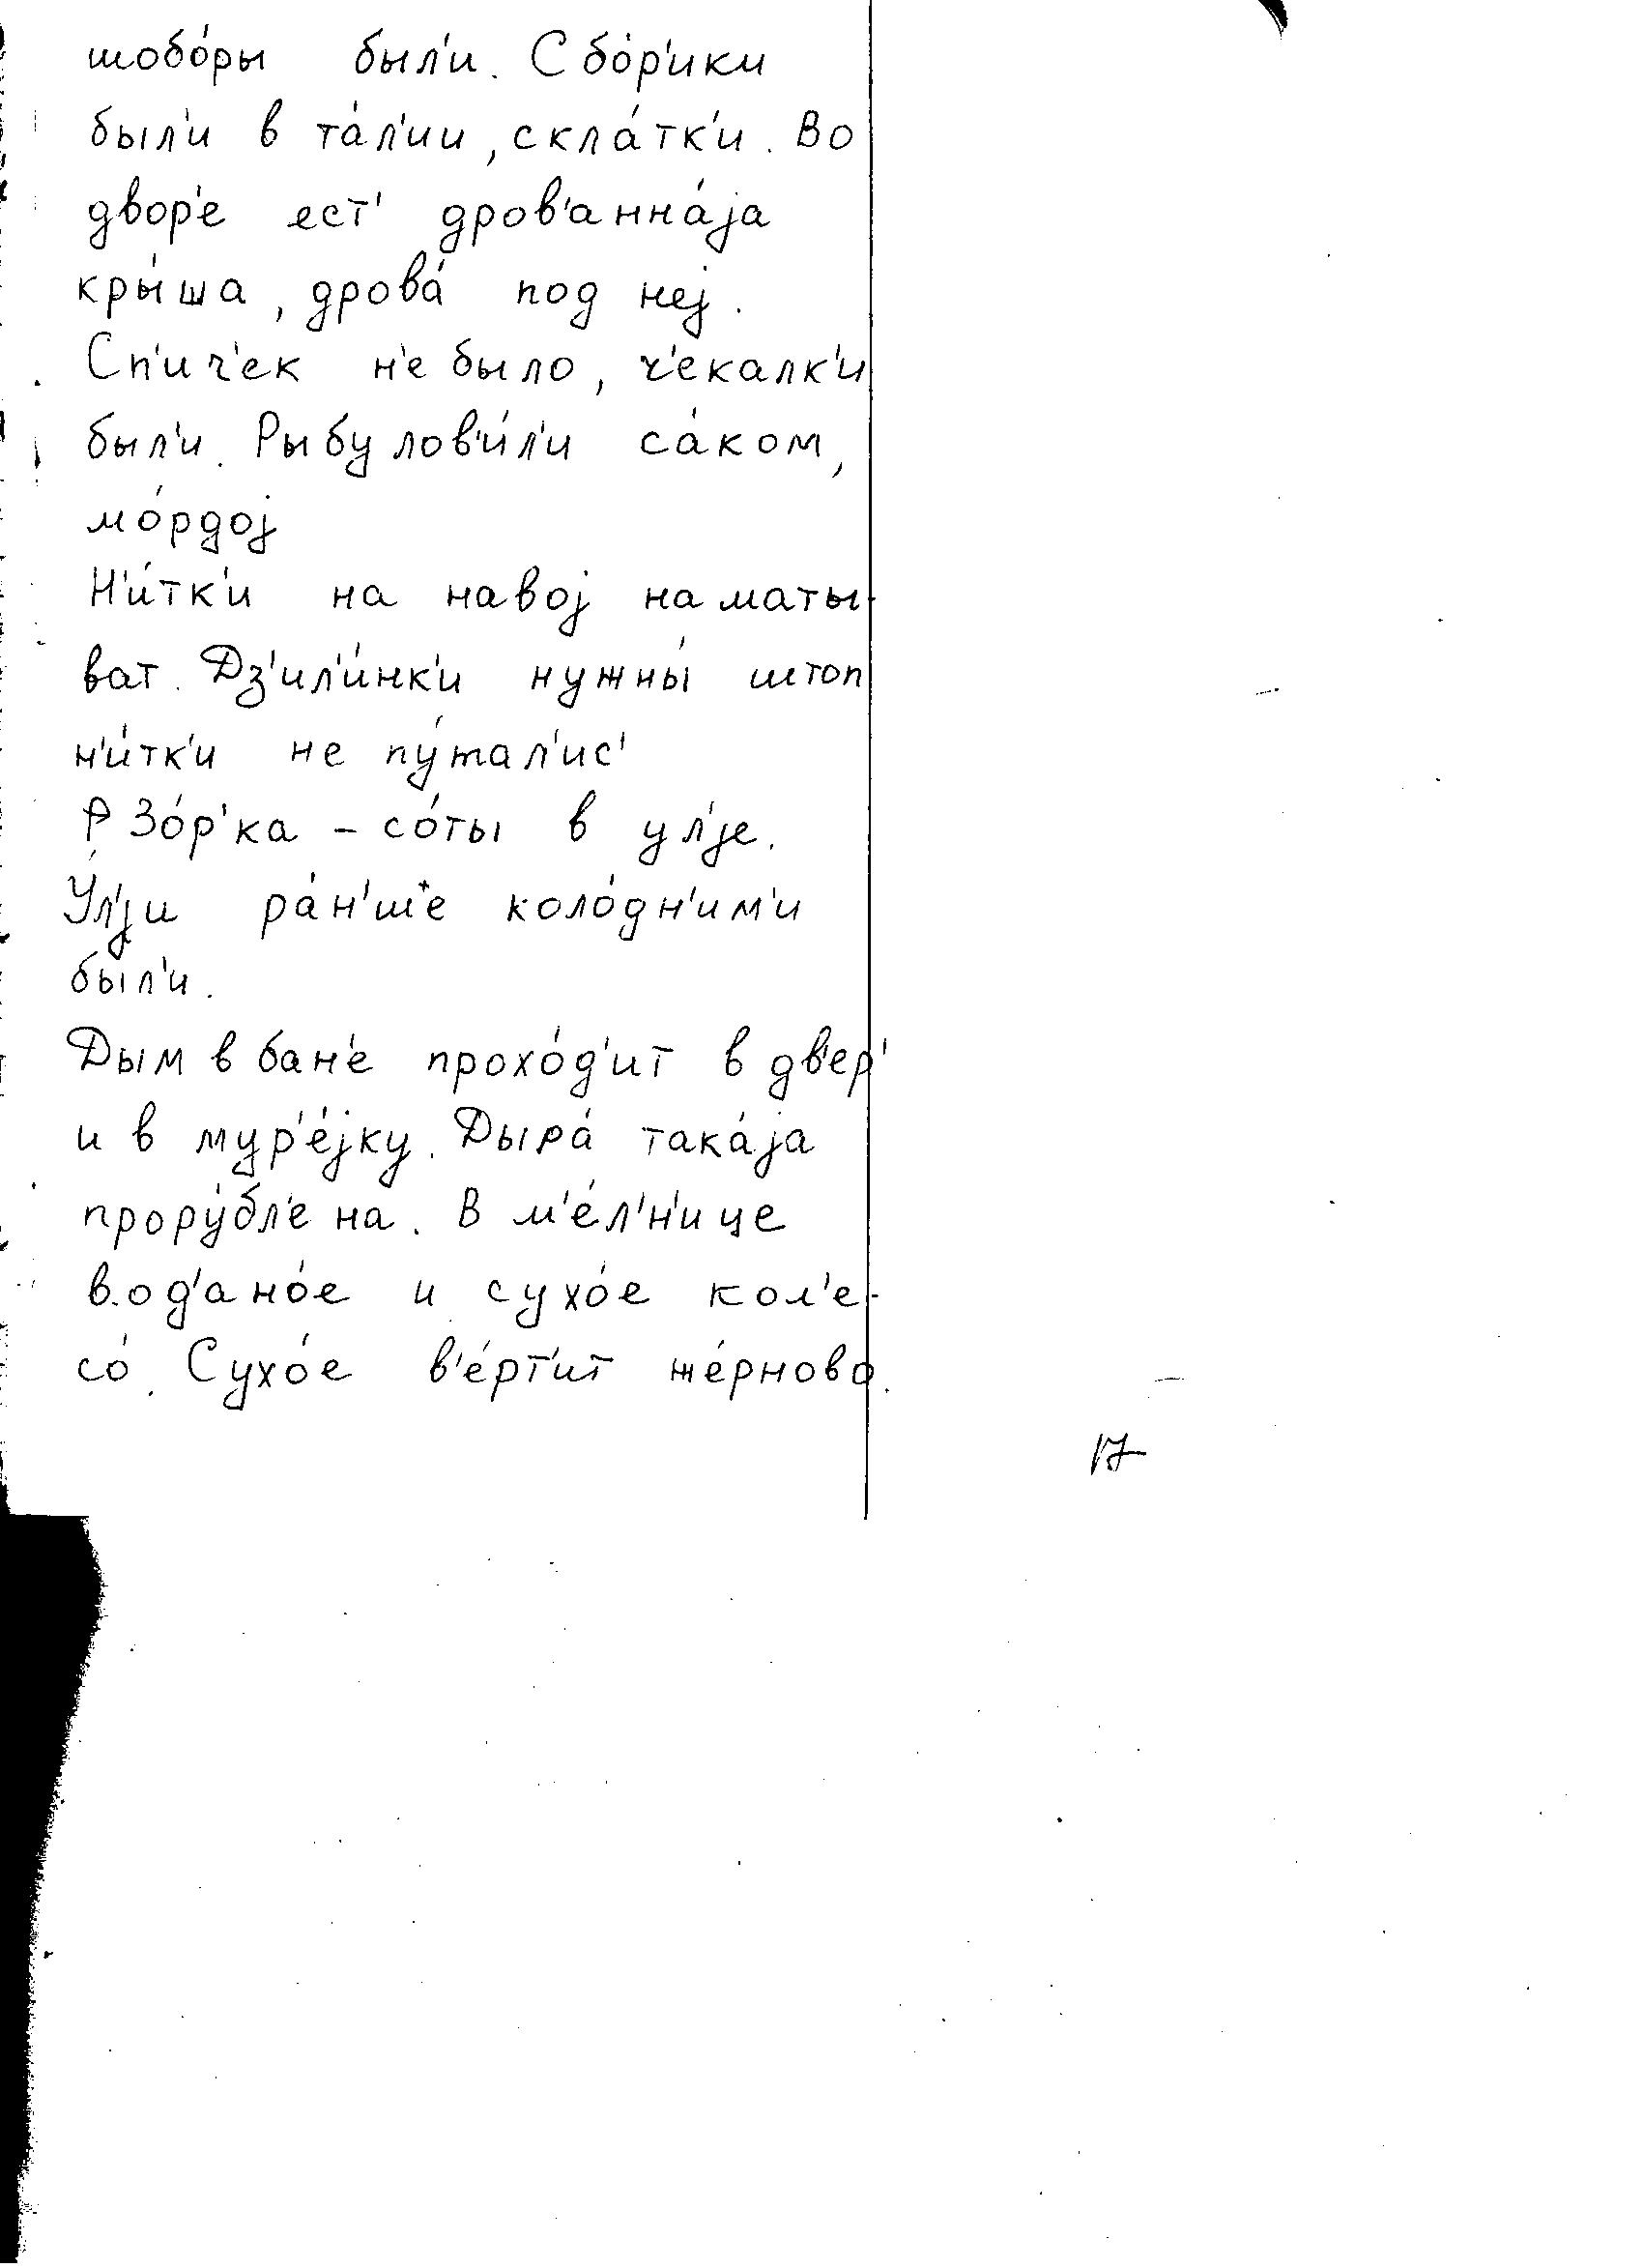 шобо́ры был'и. Сбо́р'ики
был'и в та́л'ии, скла́тк'и. Во
двор'е јест' дров'анна́ја
кры́ша, дрова́ под неј.
Сп'ич'ек н'е было, ч'екалк'и
был'и. Рыбу лов'и́л'и са́ком,
мо́рдој
Н'и́тк'и на навој наматы-
ват. Дз'ил'и́нк'и нужны́ штоп
н'и́тк'и не пу́тал'ис'
Зо́р'ка – со́ты в ул'је.
У́л'ји ра́н'ш'е коло́дн'им'и
был'и.
Дым в бан'е прохо́д'ит в дв'ер'
и в мур'е́јку. Дыра́ така́ја
прору́бл'ена. В м'е́л'н'ице
вод'ано́е и сухо́е кол'е-
со́. Сухо́е в'е́рт'ит же́рново.
17